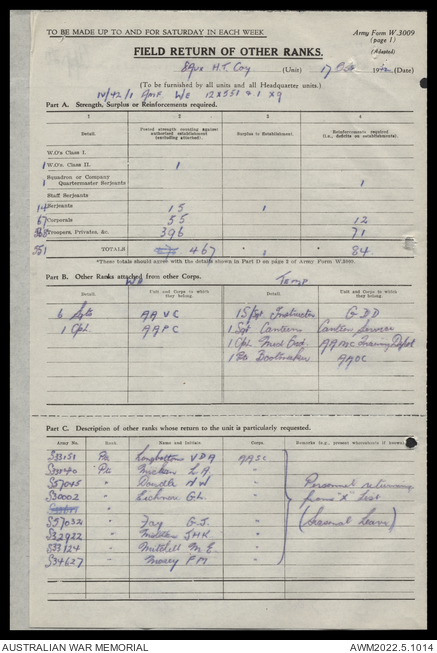 TO BE MADE UP TO AND FOR SATURDAY IN EACH WEEK
Army Form W.3009
(page 1)
(Adapted)
FIELD RETURN OF OTHER RANKS.
H.T. Coy (Unit) 17 Oct (Date)
(To be furnished by all units and all Headquarter units.)
IV/42/1 W/E 12x551 + 1 x 9
Part A. Strength, Surplus or Reinforcements required.
1 2 3 4
Detail. Posted strength counting against authorised establishment (excluding attached). Surplus to Establishment. Reinforcements required (i.e., deficits on establishments).
W.O's Class I.
1 W.O's. Class II. 1
Squadron or Company
1 Quartermaster Serjeants 1
Staff Serjeants
14 Serjeants 15 1
67 Corporals 55 12
Troopers, Privates, &c. 396 71
551 TOTALS 467 84
*These totals should agree with the details shown in Part D on page 2 of Army Form W.3009.
Part B. Other Ranks attached from other Corps.
WE Temp
Detail. Unit and Corps to which they belong. Detail. Unit and Corps to which they belong.
6 Sgts AAVC 1 S/Sgt Instructor GDD
1 Cpl AAPC 1 Sgt Canteen Canteen Service
1 Cpl Med Ord. AAMC Training Depot
1 Pte Bootmaker AAOC
Part C. Description of other ranks whose return to the unit is particularly requested.
Army No. Rank Name and Initials Corps. Remarks (e.g., present whereabouts if known).
S33151 Pte Longbottom V D A AASC
Pte L A "
S57045 " H W "
S30002 " G L "
S57032 " Fay G. J. "
S32922 " J H K "
S33124 " Mitchell M. E. "
S34627 " Morey F M "
Personnel returning
from "X" List
(Seasonal Leave)
AUSTRALIAN WAR MEMORIAL
AWM2022.5.1014